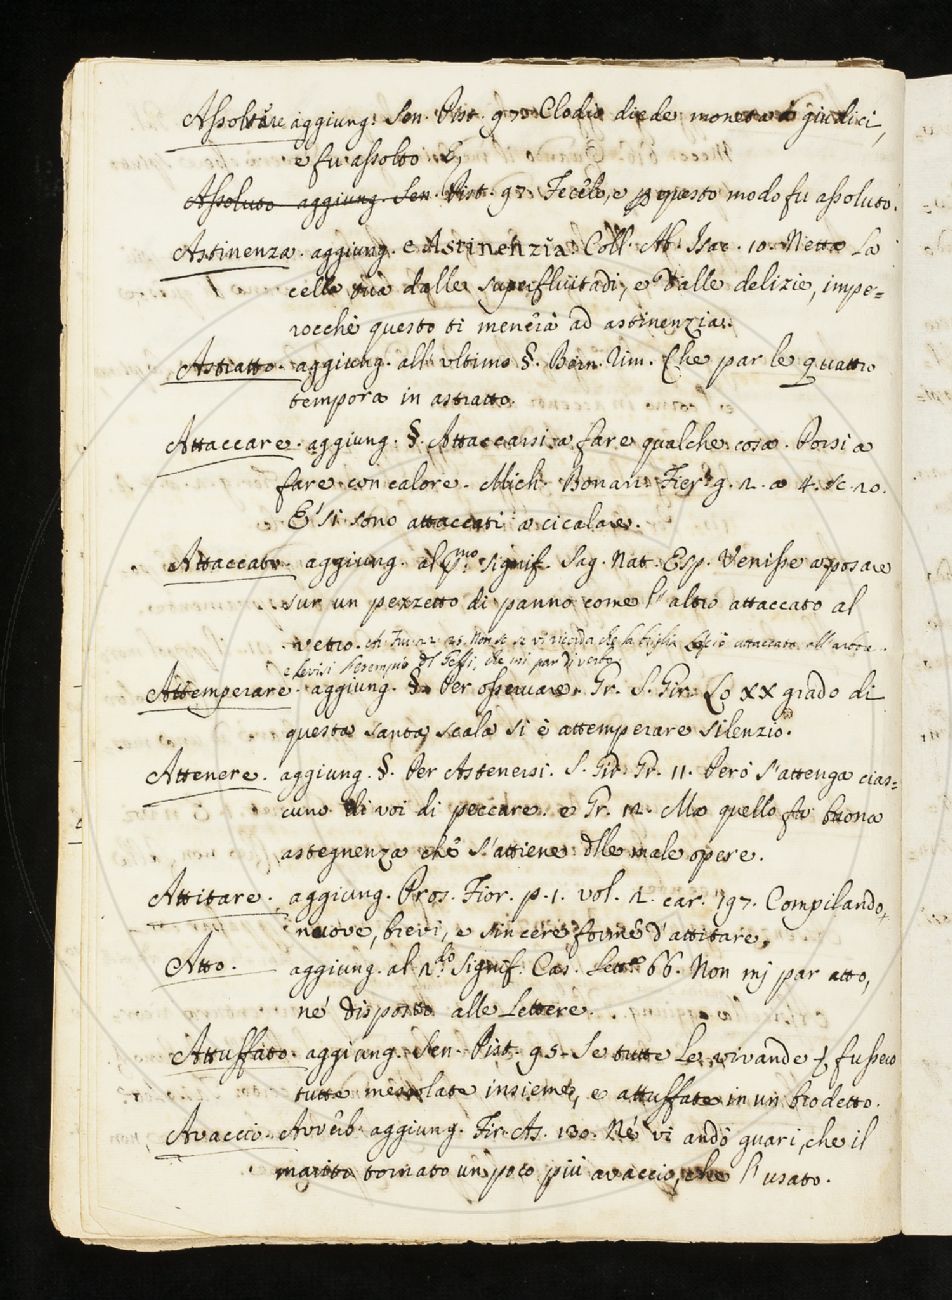 Assolvere aggiung. Sen. Pist. 97. Clodio diede moneta a' giudici,
e fu assolto &c
Assoluto aggiung. Sen. Pist. 97. Fecelo, e p questo modo fu assoluto.
Astinenza. aggiung. e Astinenzia. Coll. Ab. Isac. 10. Netta la
cella tua dalle superfluitadi, e dalle delizie, impe=
rocchè questo ti menerà ad astinenzia.
Astratto. aggiung. all' ultimo §. Bern. Rim. Che par le quattro
tempora in astratto.
Attaccare. aggiung. §. Attaccarsi a fare qualche cosa. Porsi a
fare con calore. Mich. Bonarr. Fier. g. 2. a 4. sc. 20.
E' si sono attaccati a cicalare.
Attaccato. aggiung. al pmo. signif. Sag. Nat. Esp. Venisse a posare
sur un pezzetto di panno come l'altro attaccato al
vetro.
Attemperare. aggiung. §. Per osservare. Gr. S. Gir. Lo XX grado di
questa santa scala si è attemperare silenzio.
Attenere. aggiung. §. Per Astenersi. S. Gir. Gr. 11. Però s'attenga cias=
cuno di voi di peccare. e Gr. 12. Ma quella fu buona
astegnenza che s'attiene dlle male opere.
Attitare. aggiung. Pros. Fior. p. 1. vol. 2. car. 197. Compilando
nuove, brevi, e sincere forme d'attitare.
Atto. aggiung. al 2do. signif. Cas. Lett. 66. Non mj par atto,
nè disposto alle Lettere.
Attuffato. aggiung. Sen. Pist. 95. Se tutte le vivande &c fussero
tutte mescolate insieme, e attuffate in un brodetto.
Avaccio. Avverb. aggiung. Fir. As. 130. Nè vi andò guari, che il
marito tornato un poco più avaccio, che l'usato.